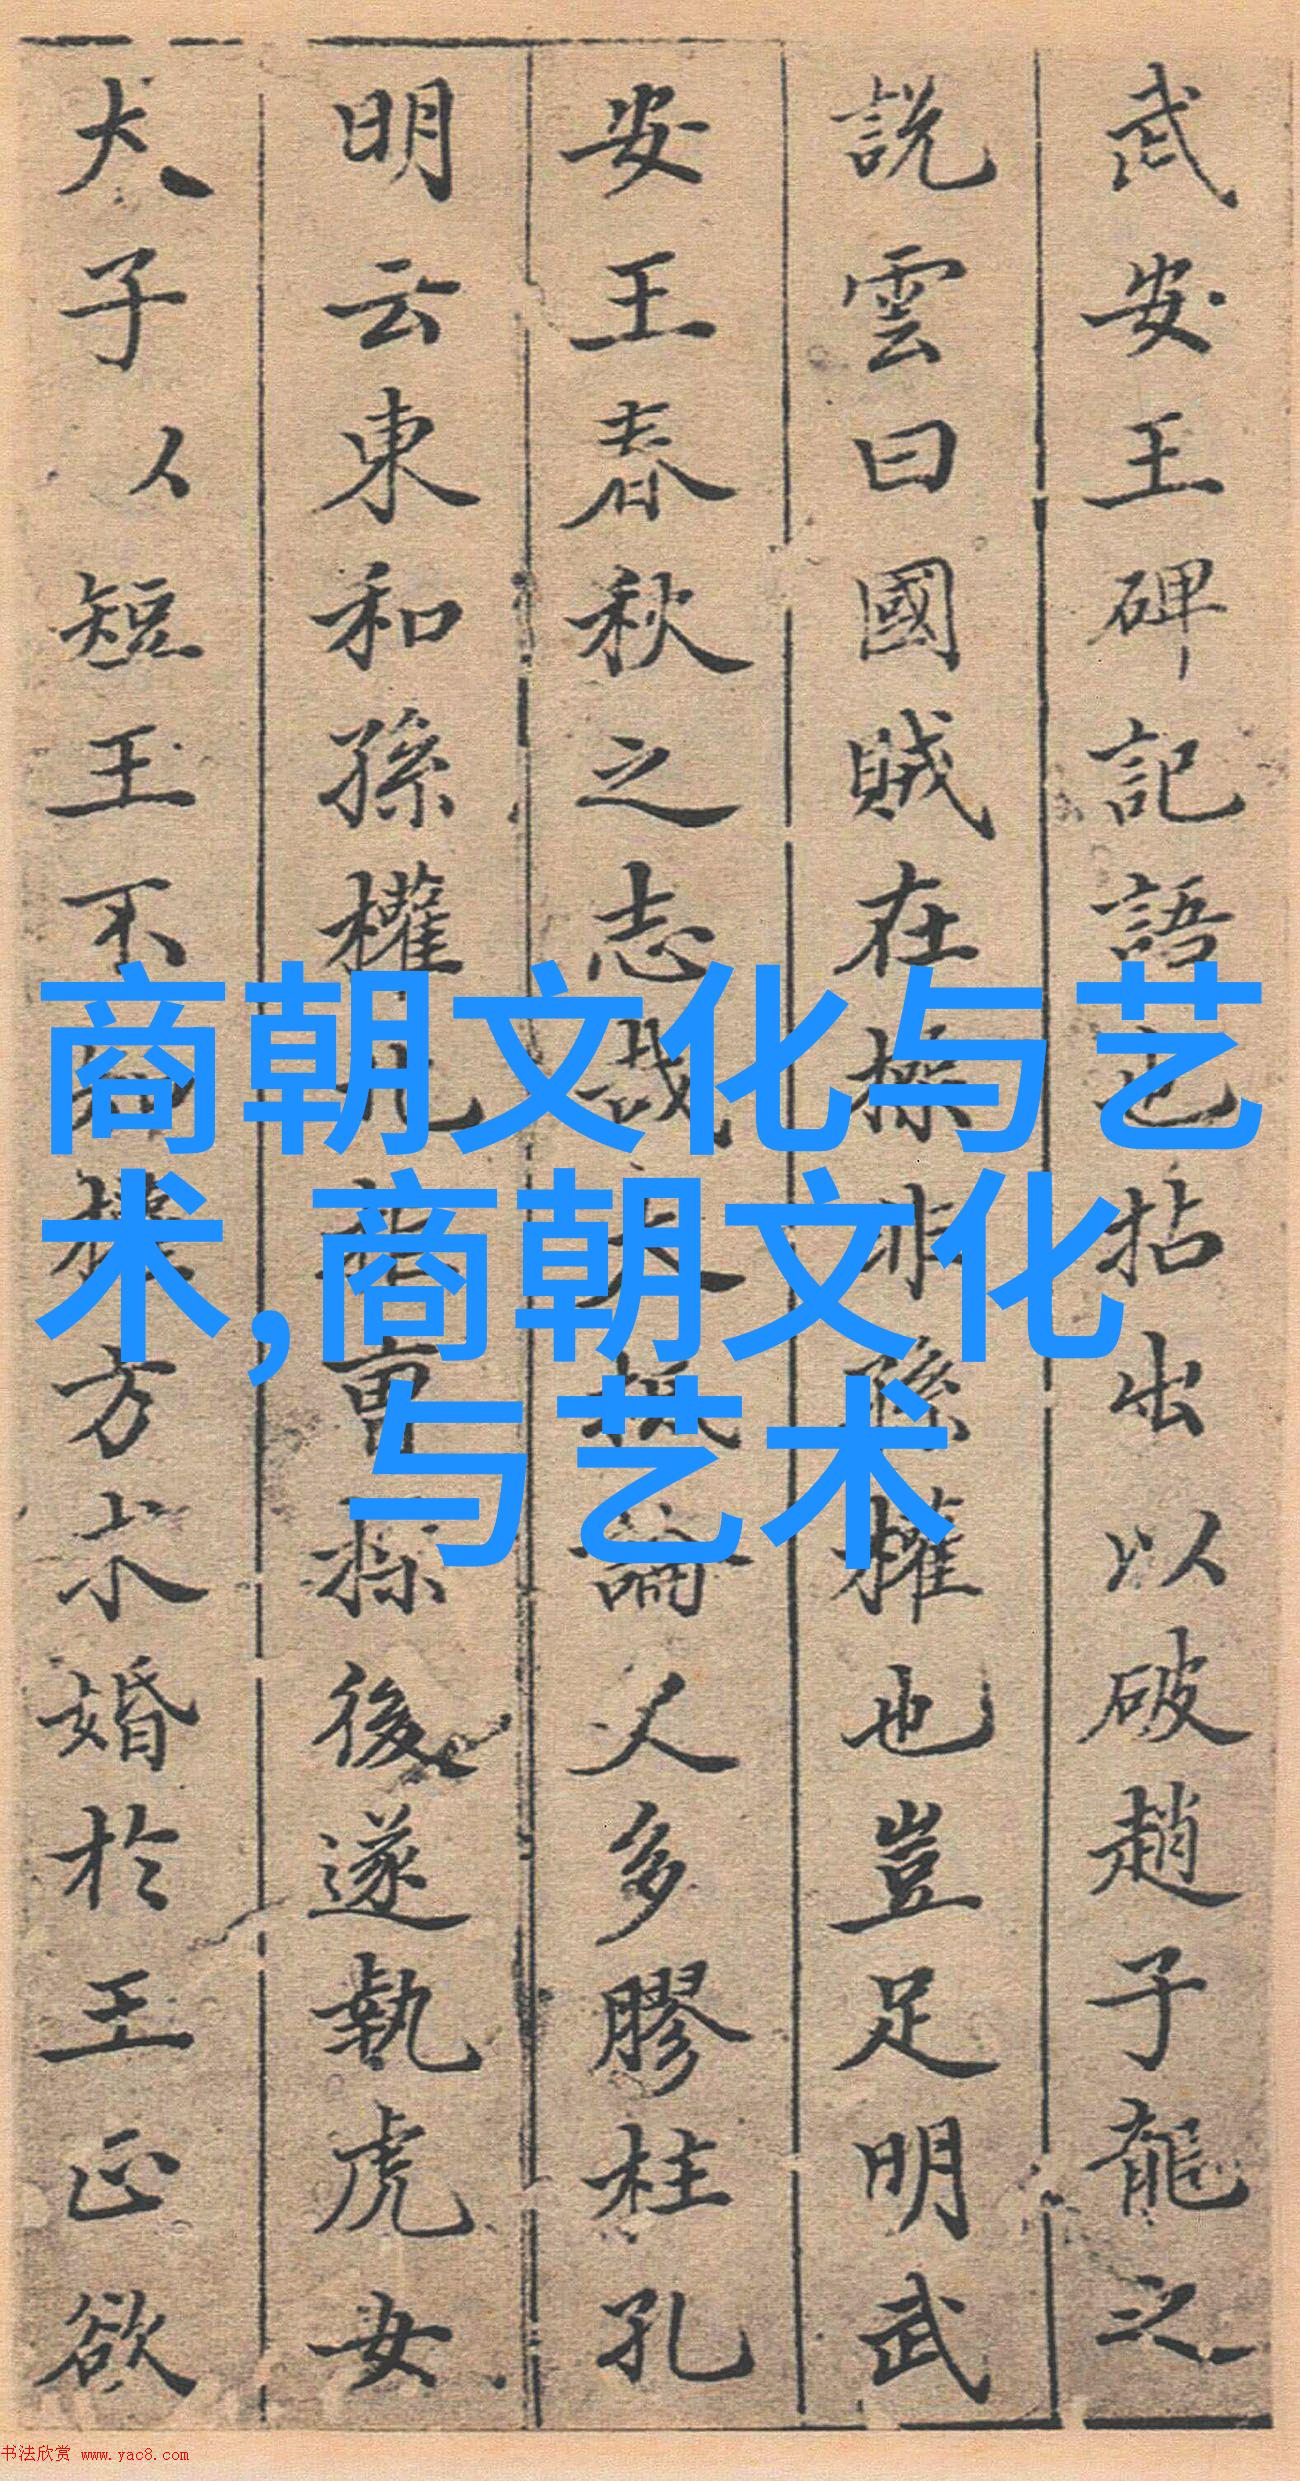 武安王碑記語也拈出以破趙子龍之
說雲曰國賊在操非孫權也豈足明武
安王春秋之志哉大抵論人多膠柱孔
明云東和孫權北拒曹操後遂執虎女
犬子以短王不知權方求婚於王正欲
商朝文化与艺
术,商朝文化
与艺术
书法欣赏 www.yac8.com